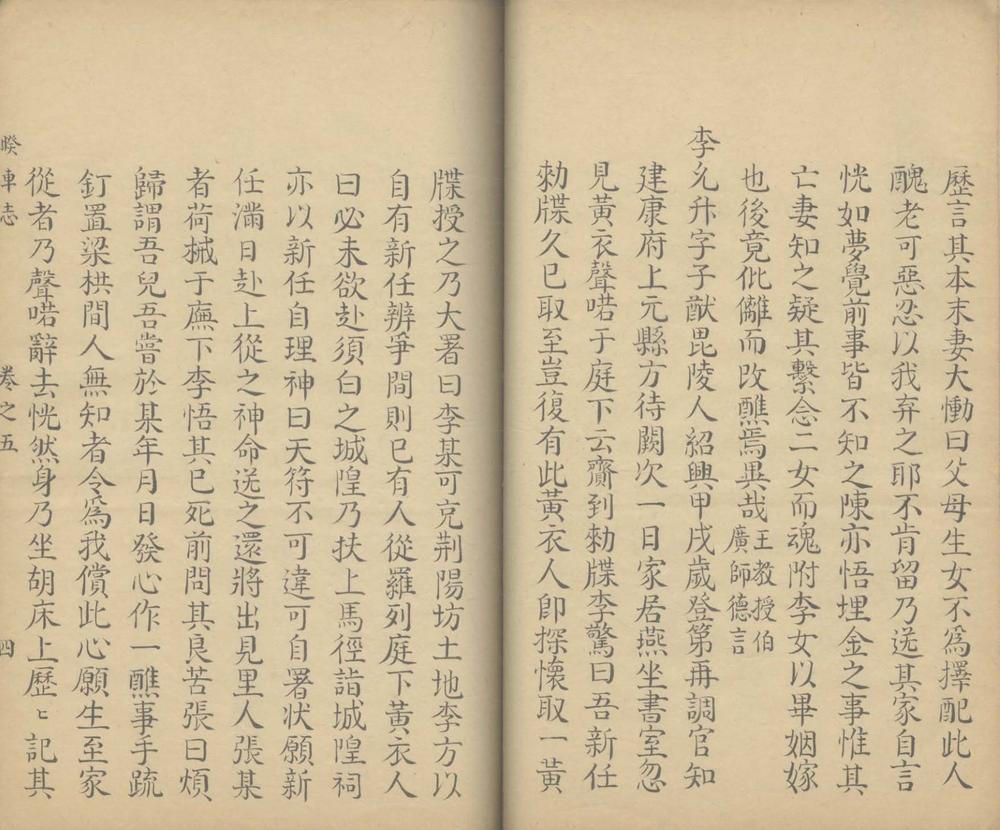 歷言其本末妻大慟曰父母生女不爲擇配此人
醜老可惡忍以我弃之耶不肯留乃送其家自言
恍如夢覺前事皆不知之陳亦悟埋金之事惟其
亡妻知之疑其繫念二女而魂附李女以畢姻嫁
也後竟仳離而改醮焉異哉王教授伯廣師德言
李允升字子猷毘陵人紹興甲戌歲登第再調官知
建康府上元縣方待闕次一日家居燕坐書室忽
見黃衣聲喏于庭下云齎到勑牒李驚曰吾新任
勑牒久已取至豈復有此黃衣人卽探懷取一黃
牒授之乃大署曰李某可充荆陽坊土地李方以
自有新任辨爭間則已有人從羅列庭下黃衣人
曰必未欲赴須白之城隍乃扶上馬徑詣城隍祠
亦以新任自理神曰天符不可違可自署状願新
任滿日赴上從之神命送之還將出見里人張某
者荷械于廡下李悟其已死前問其良苦張曰煩
歸謂吾兒吾嘗於某年月日發心作一醮事手疏
釘置梁栱間人無知者令爲我償此心願生至家
從者乃聲喏辭去恍然身乃坐胡床上歷〻記其
睽車志 卷之五 四